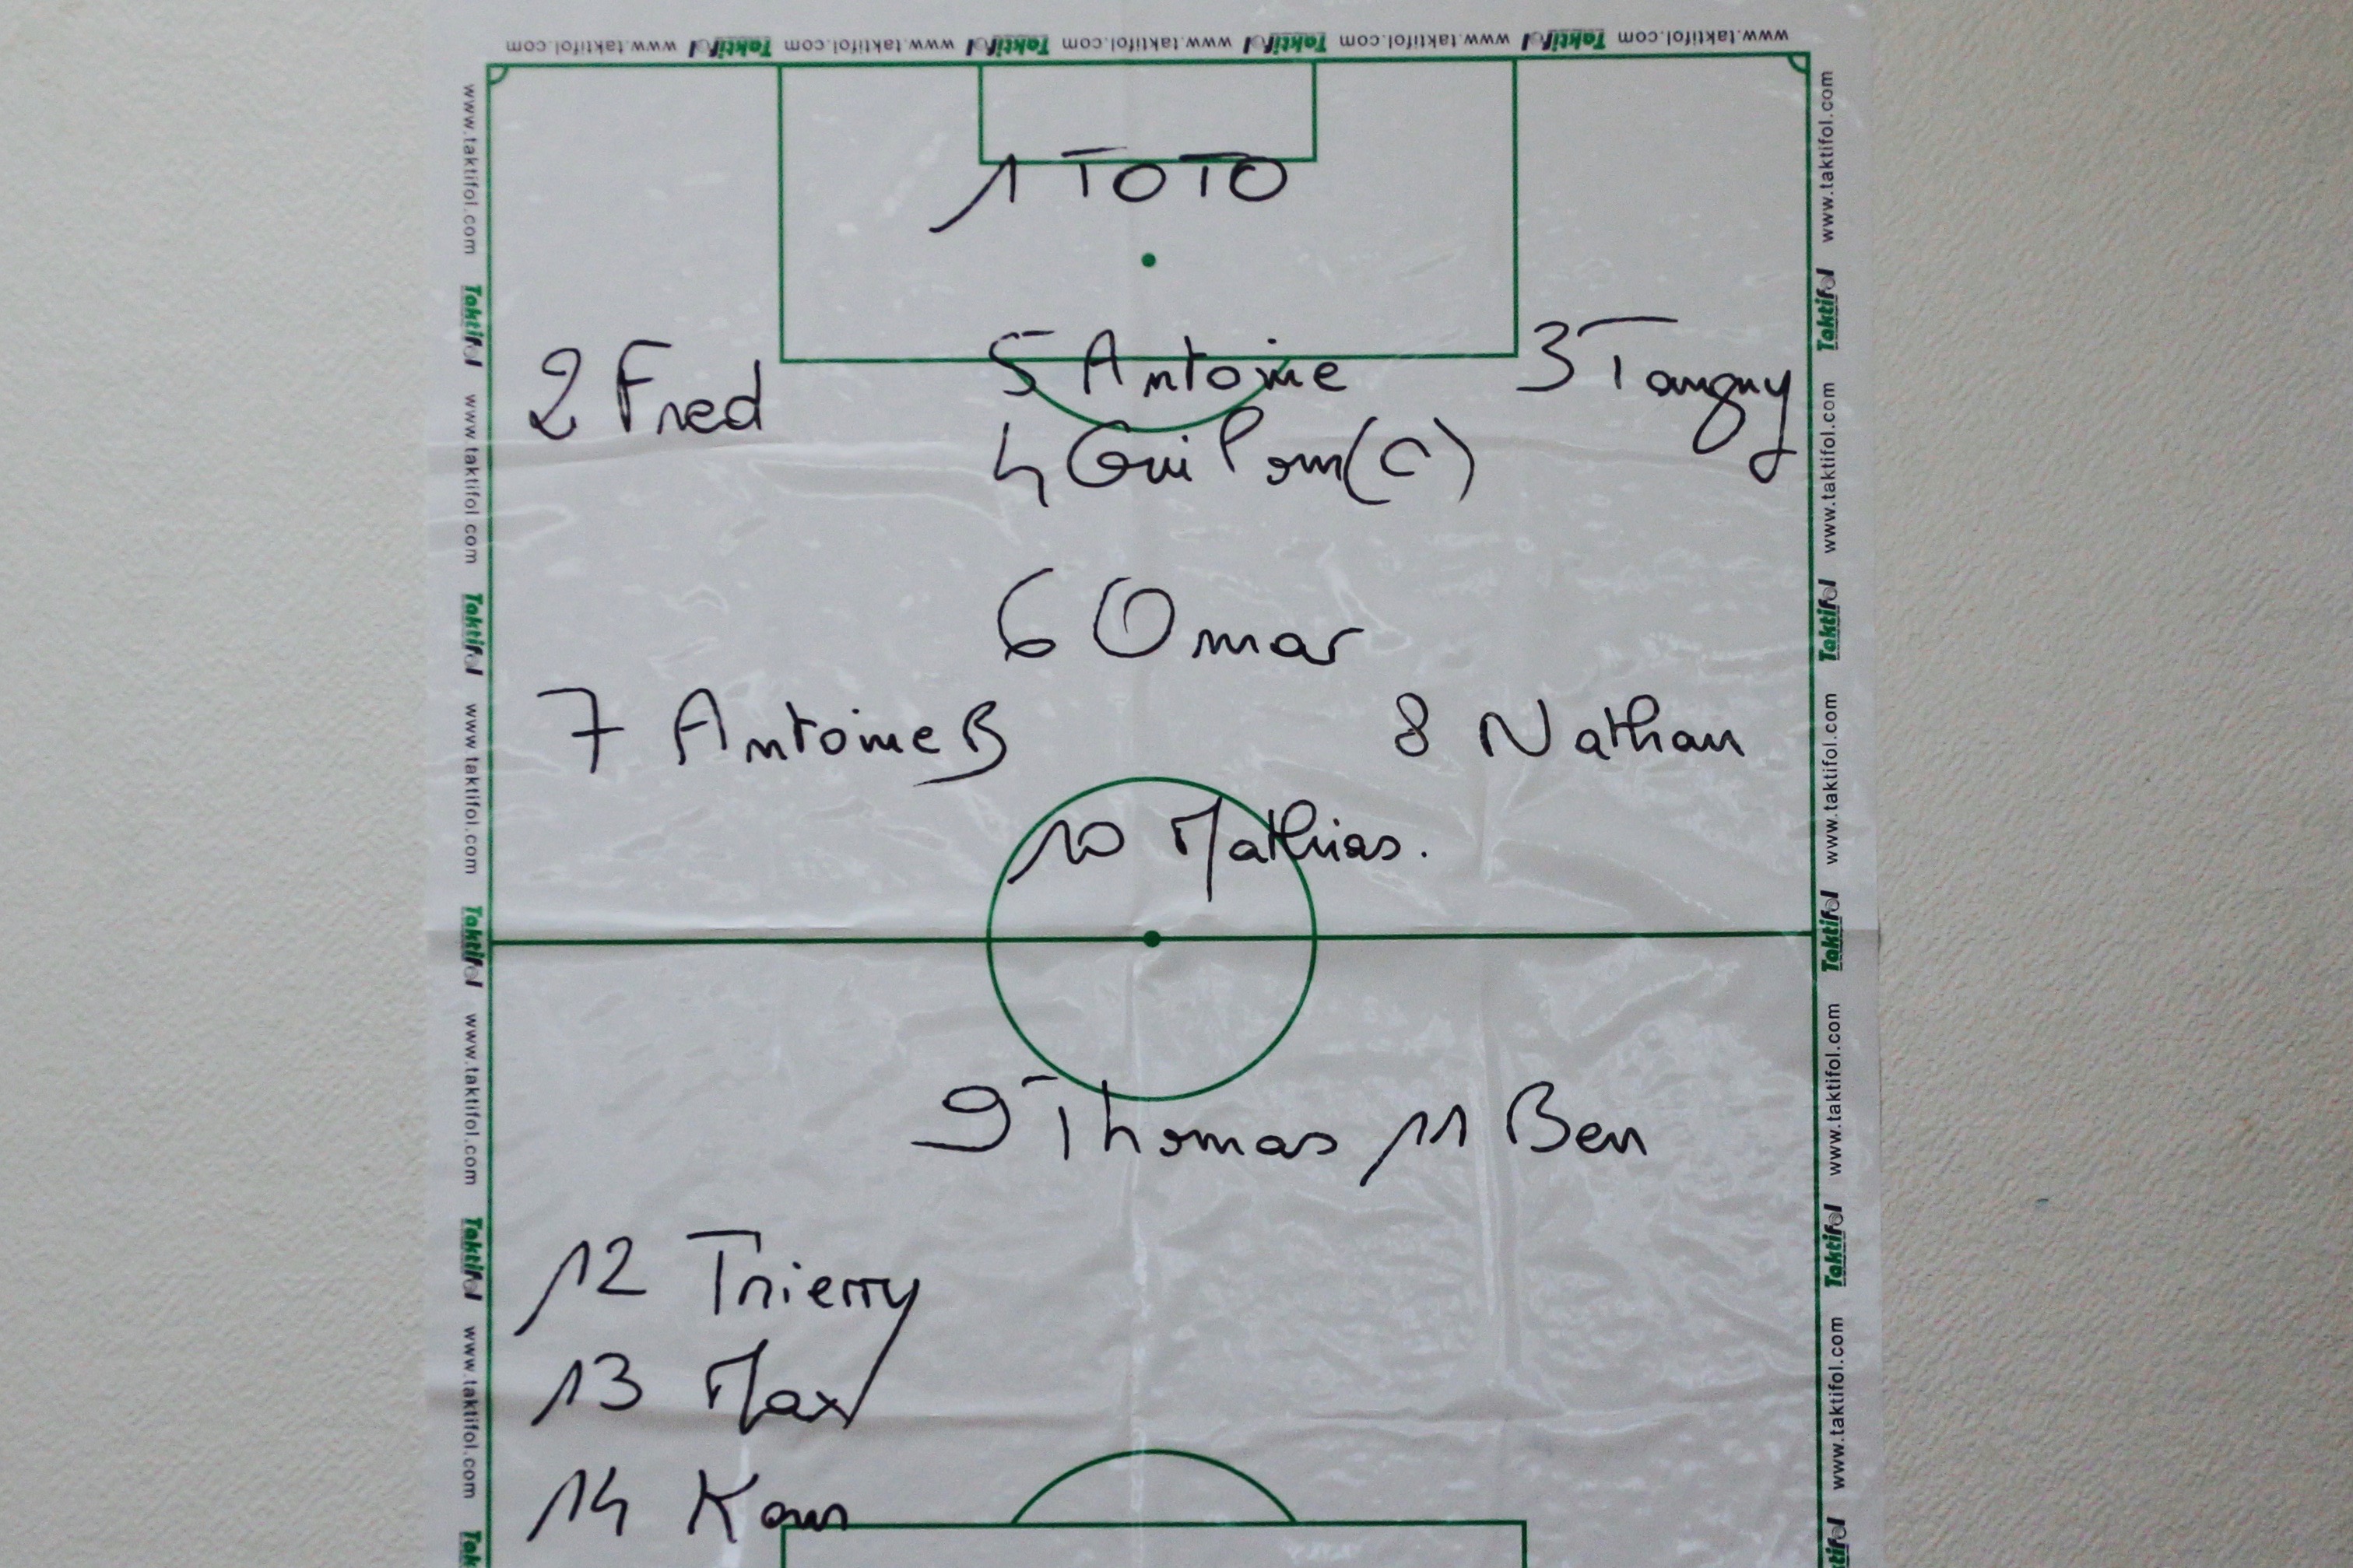 www.taktifol.com Taktifol www.taktifol.com Taktifol www.taktifol.com Taktifol www.taktifol.com Taktifol www.taktifol.com
www.taktifol.com Taktifol www.taktifol.com Taktifol www.taktifol.com Taktifol www.taktifol.com Taktifol www.taktifol.com
1 TOTO
2 Fred
5 Antoine
3 Tanguy
4 Gui Pom (C)
6 Omar
7 Antoine B
8 Nathan
10 Mathias.
9 Thomas 11 Ben
12 Thierry
13 Max
14
www.taktifol.com Taktifol www.taktifol.com Taktifol www.taktifol.com Taktifol www.taktifol.com Taktifol www.taktifol.com